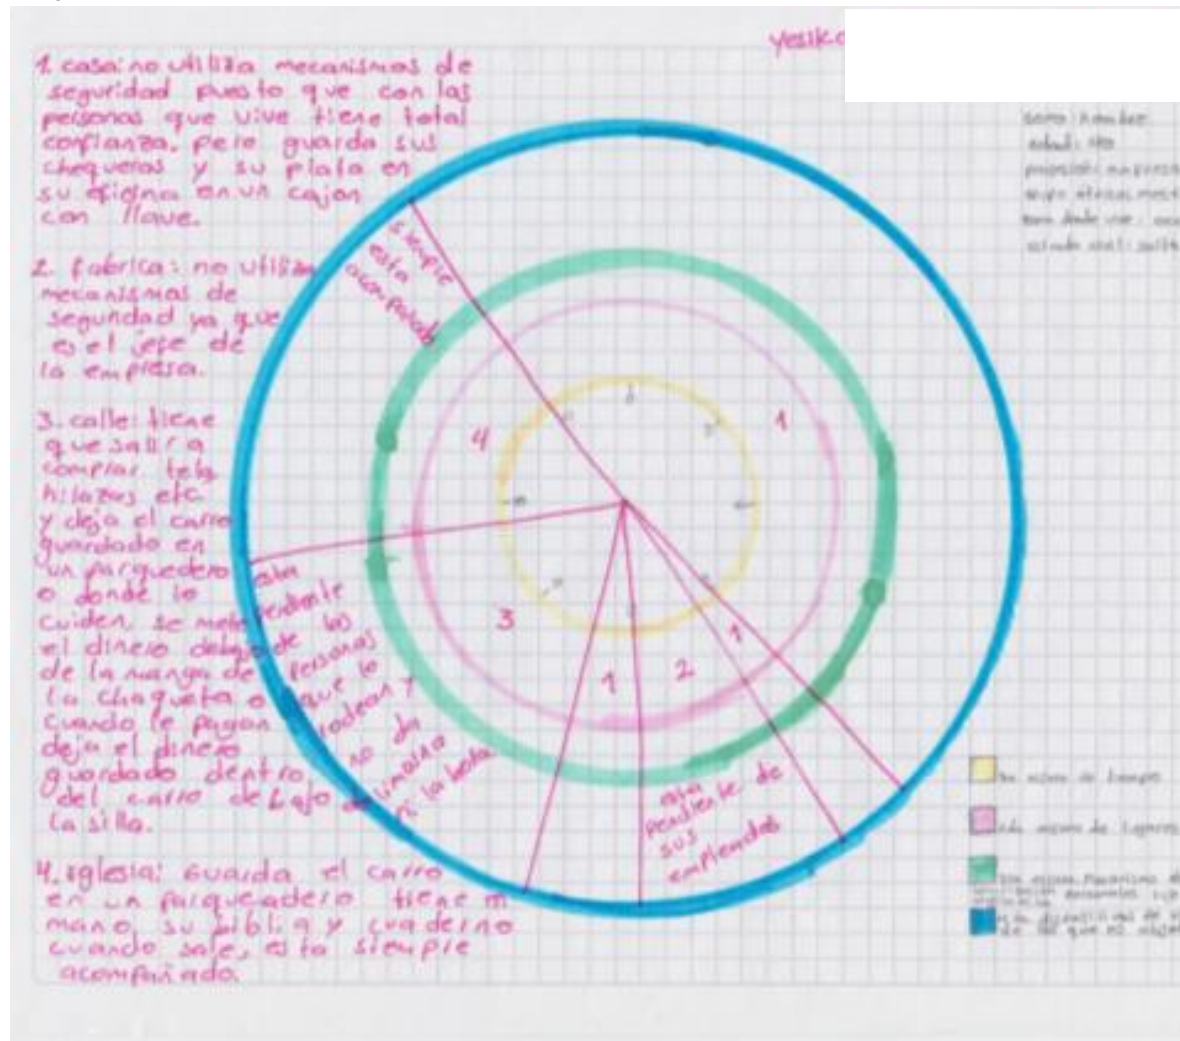 yesika
1. casa: no utiliza mecanismos de
seguridad puesto que con las
personas que vive tiene total
confianza, pero guarda sus
chequeras y su plata en
su oficina en un cajon
con llave.
2. fabrica: no utiliza
mecanismos de
seguridad ya que
es el jefe de
la empresa.
3. calle: tiene
que salir a
comprar tela
hilazas etc
y deja el carro
guardado en
un parquedero
o donde lo
cuiden, se mete
el dinero debajo
de la manga de
la chaqueta o
cuando le pagan
deja el dinero
guardado dentro
del carro debajo de
la silla.
4. iglesia: Guarda el carro
en un parqueadero tiene en
mano su biblia y cuaderno
cuando sale, esta siempre
acompañado.
siempre
esta
acompañado
4
1
3
1
2
1
esta
pendiente
de las
personas
que lo
rodean y
no da
limosna
ni la hora
esta
pendiente de
sus
empleados
sexo: hombre
edad:
estado civil:
escala de tiempo
escala de lugares